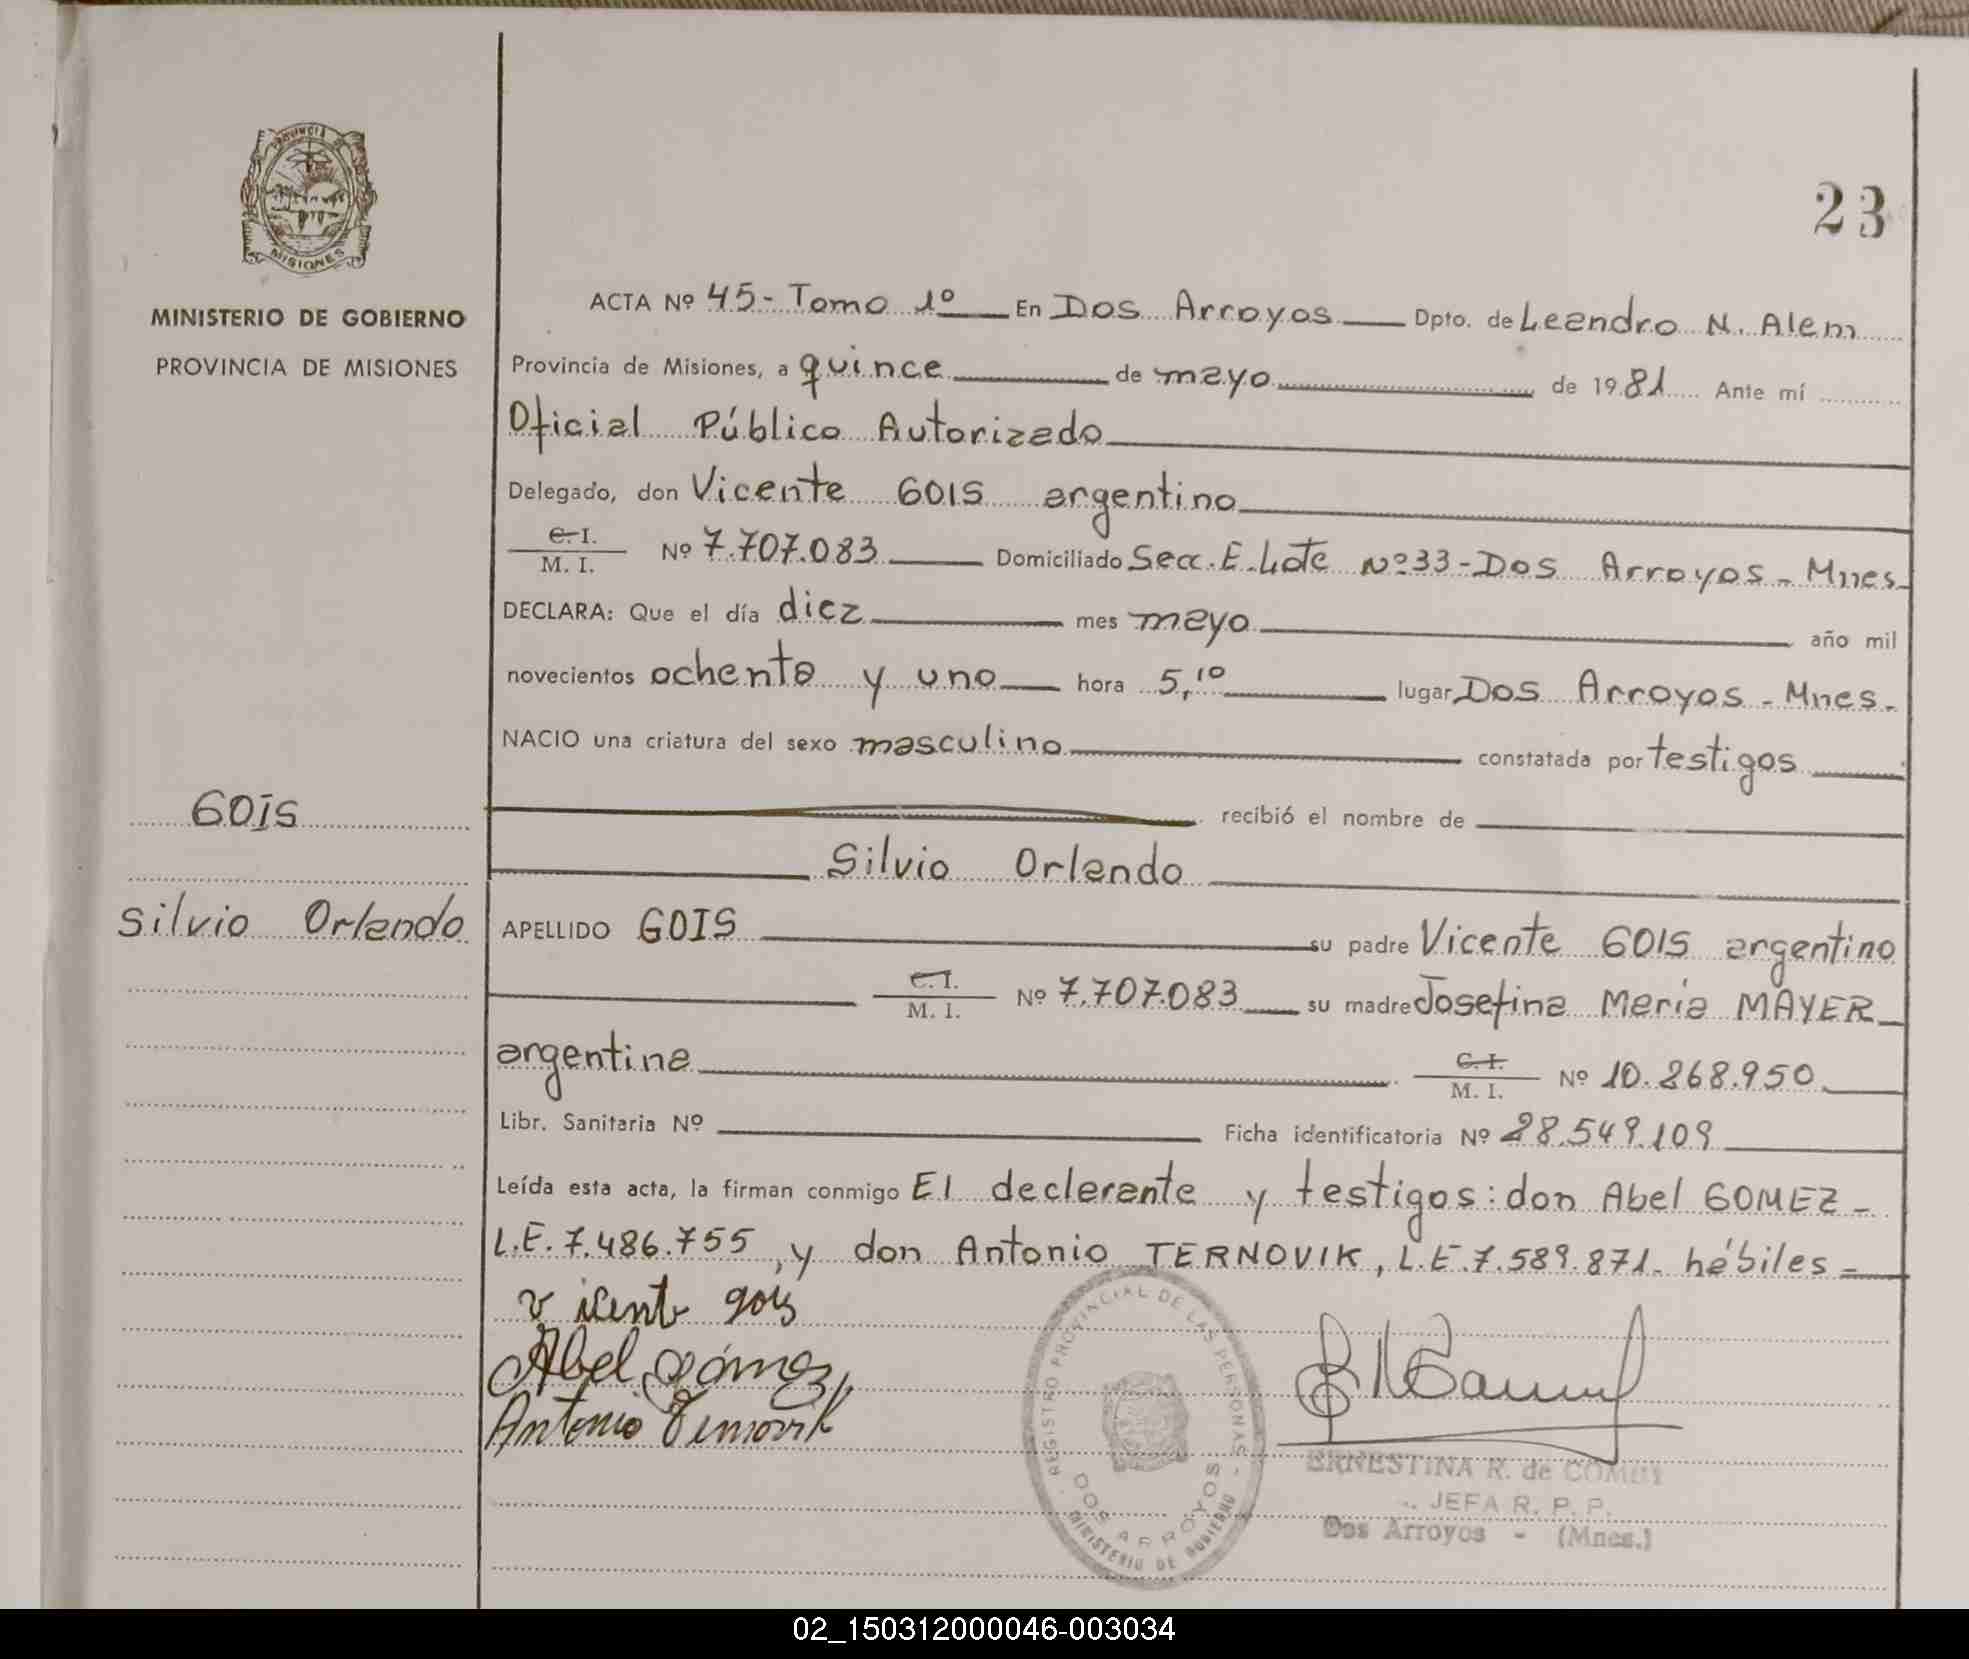 PROVINCIA
MISIONES
MINISTERIO DE GOBIERNO
PROVINCIA DE MISIONES
23
ACTA Nº 45- Tomo 1º En Dos Arroyos Dpto. de Leandro N. Alem
Provincia de Misiones, a quince de mayo de 1981 Ante mí
Oficial Público Autorizado
Delegado, don Vicente GOIS argentino
C. I. / M. I. Nº 7.707.083 Domiciliado Secc. E. Lote Nº 33 - Dos Arroyos - Mnes-
DECLARA: Que el día diez mes mayo año mil
novecientos ochenta y uno hora 5,10 lugar Dos Arroyos - Mnes.
NACIO una criatura del sexo masculino constatada por testigos
recibió el nombre de
Silvio Orlando
GOIS
Silvio Orlando
APELLIDO GOIS su padre Vicente GOIS argentino
C. I. / M. I. Nº 7.707.083 su madre Josefina María MAYER
argentina C. I. / M. I. Nº 10.268.950
Libr. Sanitaria Nº Ficha identificatoria Nº 28.549.109
Leída esta acta, la firman conmigo El declarante y testigos: don Abel GOMEZ -
L.E. 7.486.755, y don Antonio TERNOVIK, L.E. 7.589.871- hábiles -
Vicente gois
Abel Gómez
Antonio Ternovik
REGISTRO PROVINCIAL DE LAS PERSONAS
DOS ARROYOS
MINISTERIO DE GOBIERNO
ERNESTINA R. de
JEFA R. P. P.
Dos Arroyos - (Mnes.)
02_150312000046-003034